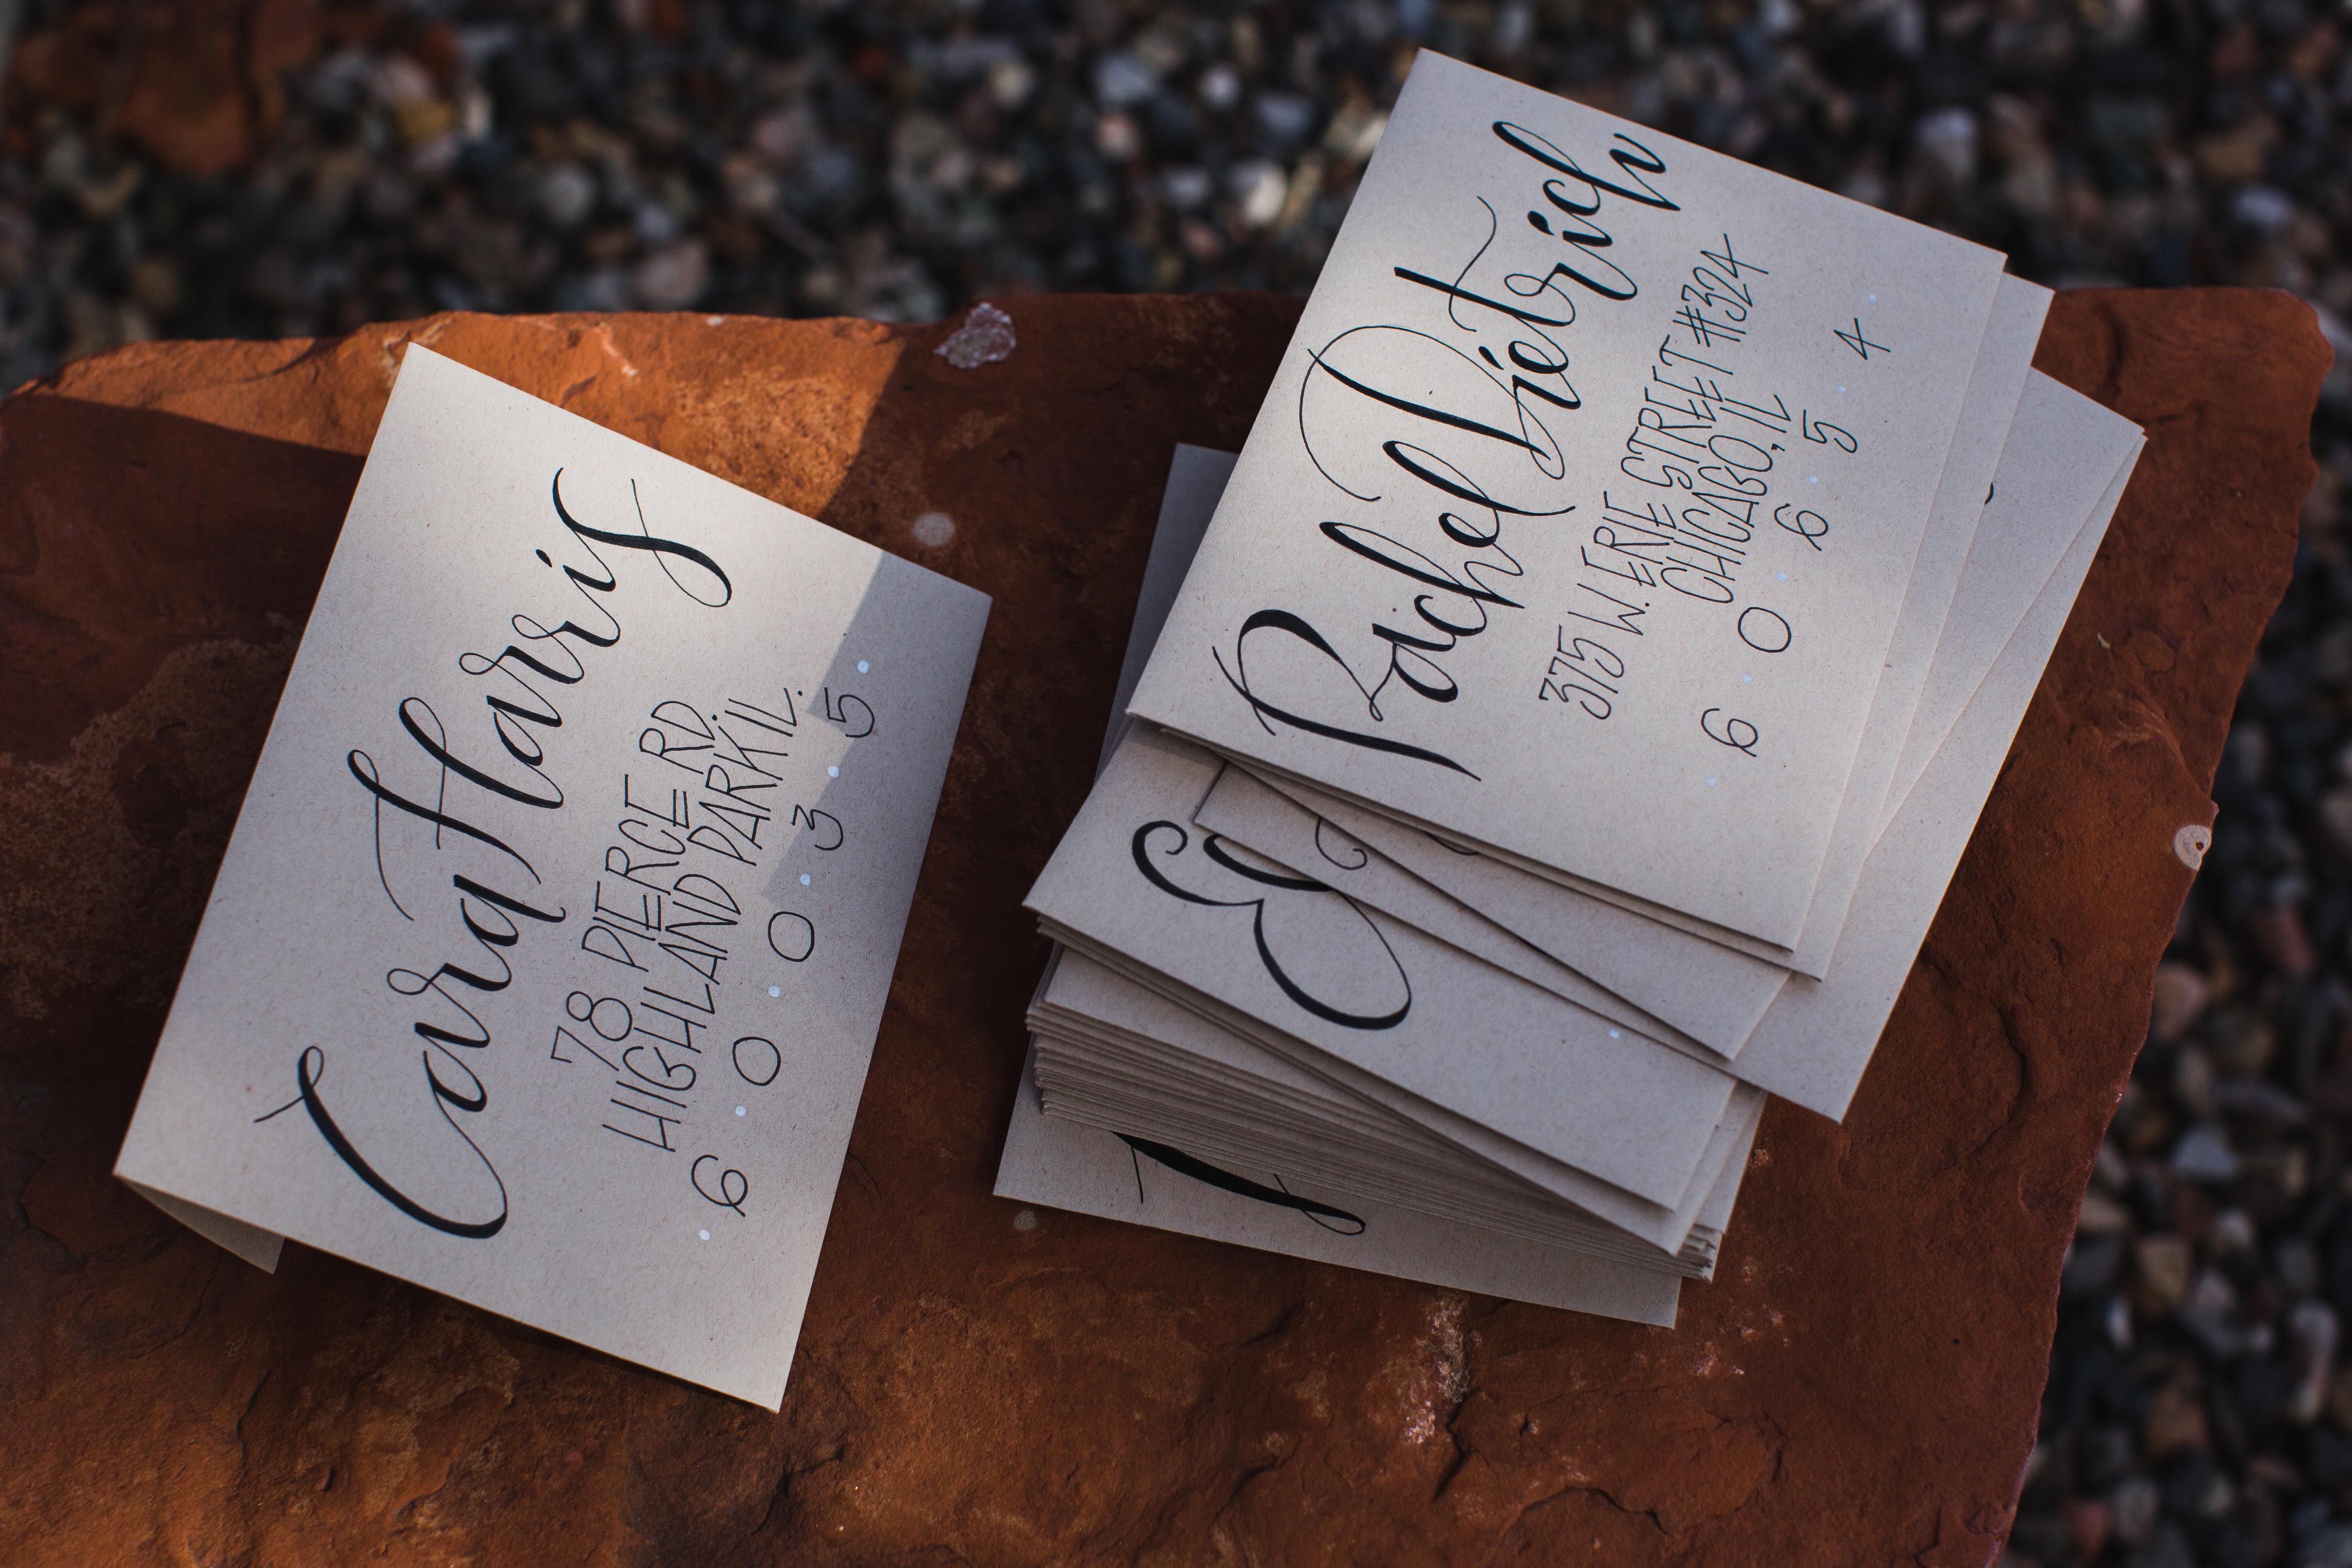 Cara Harris
78 PIERCE RD.
HIGHLAND PARK IL.
6 0 0 3 5
Rachel Dietrich
375 W. ERIE STREET #324
CHICAGO, IL
6 0 6 5 4
&